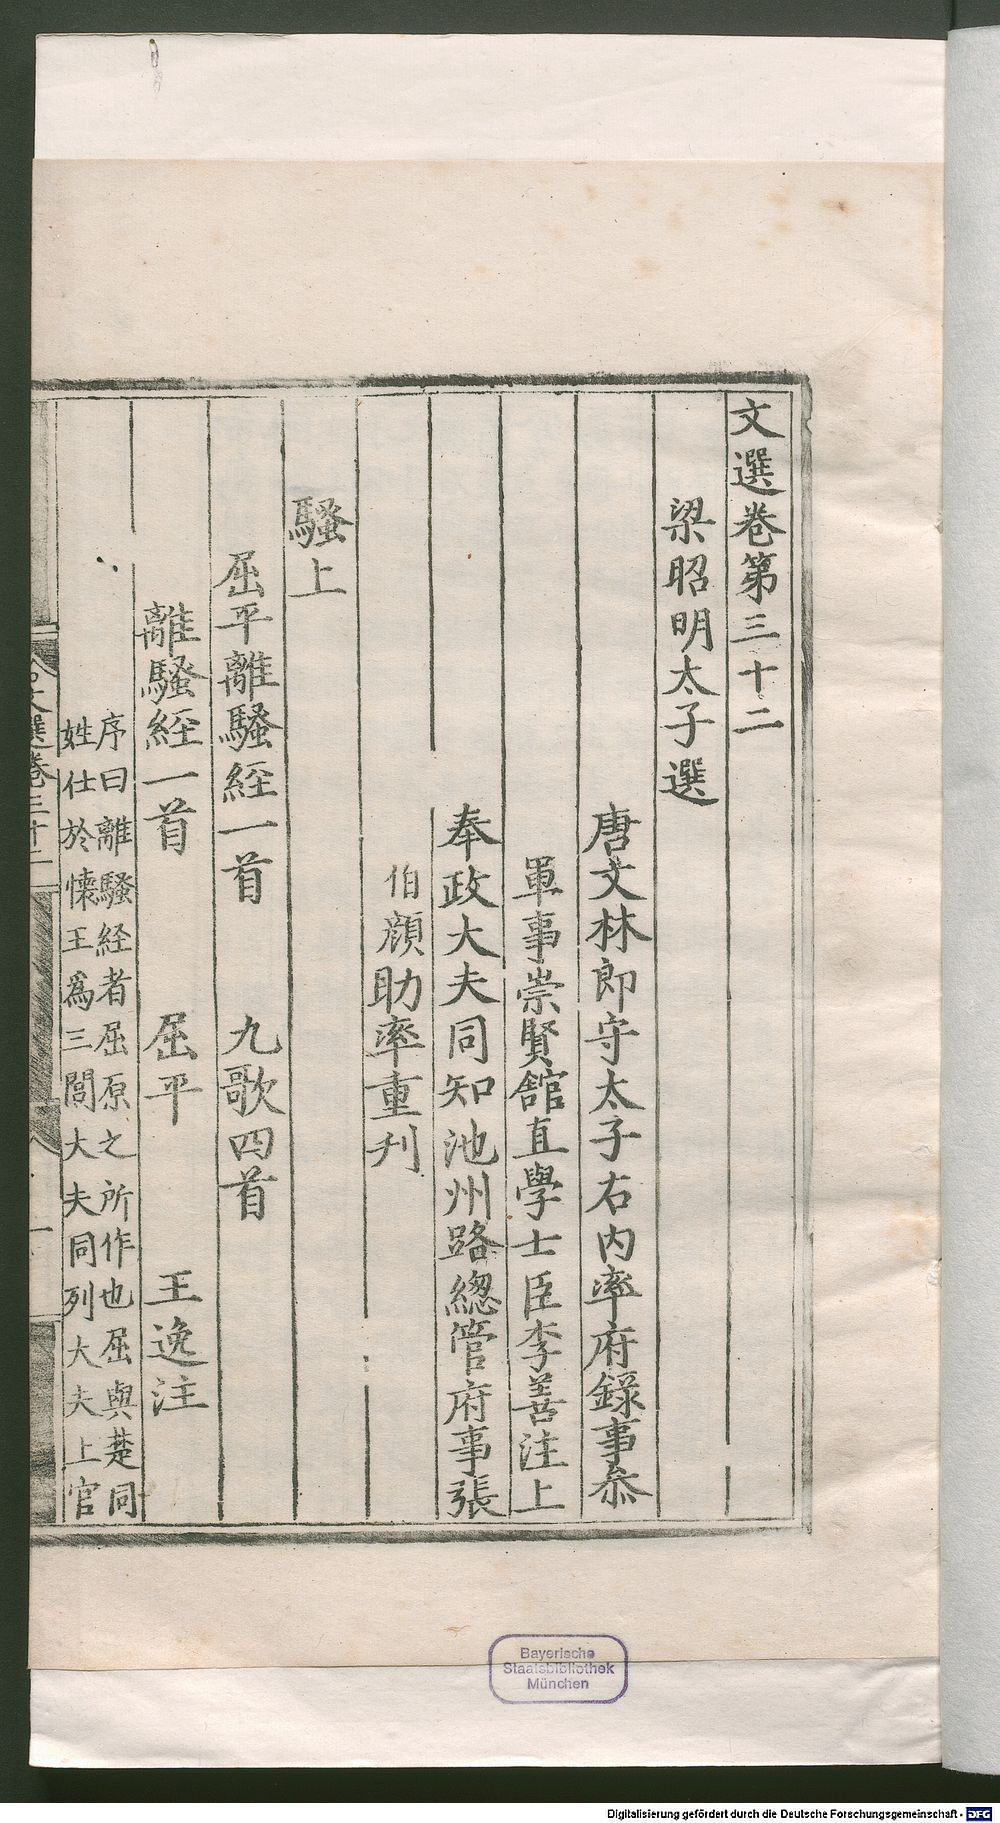 文選卷第三十二
梁昭明太子選
唐文林郎守太子右內率府錄事叅
軍事崇賢館直學士臣李善注上
奉政大夫同知池州路總管府事張
伯顔助率重刋
騷上
屈平離騷經一首 九歌四首
離騷經一首 屈平 王逸注
序曰離騷経者屈原之所作也屈與楚同
姓仕於懐王爲三閭大夫同列大夫上官
文選卷三十二
一
Bayerische
Staatsbibliothek
München
Digitalisierung gefördert durch die Deutsche Forschungsgemeinschaft - DFG